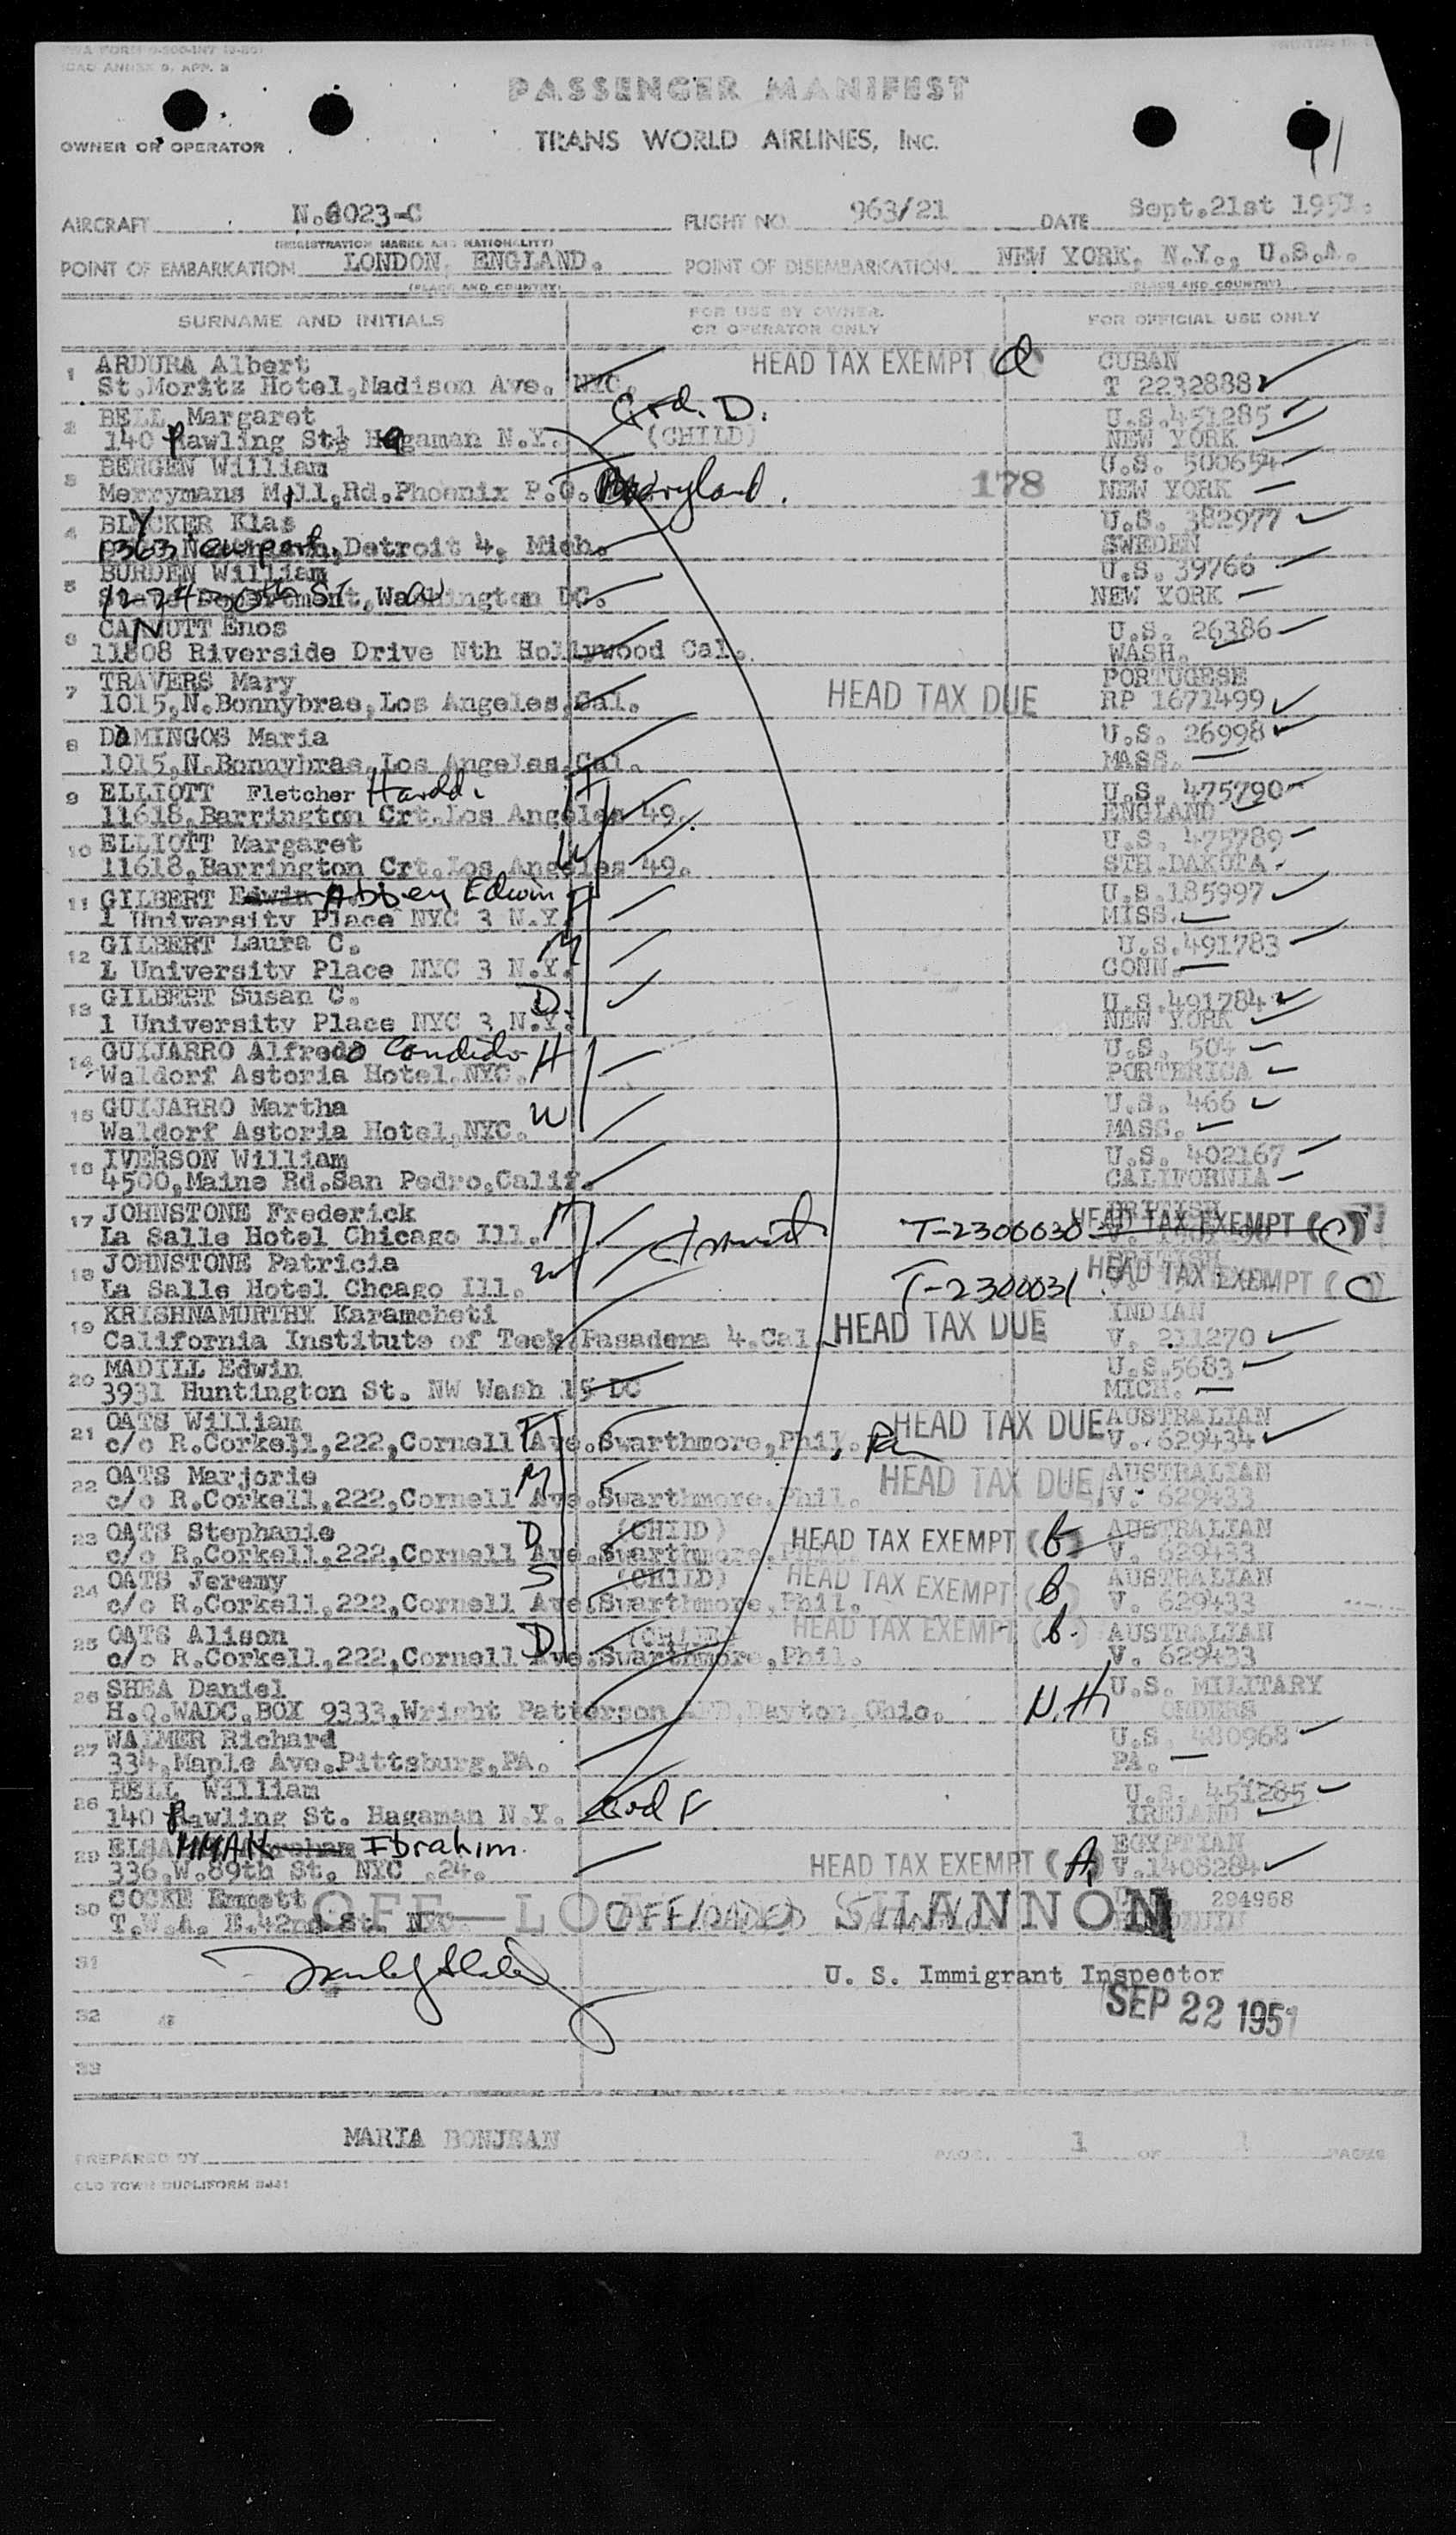 TWA FORM
ICAO ANNEX 9, APP. 3
PASSENGER MANIFEST
OWNER OR OPERATOR
TRANS WORLD AIRLINES, INC.
AIRCRAFT N.6023-C FLIGHT NO. 963/21 DATE Sept.21st 1951.
(REGISTRATION MARKS AND NATIONALITY)
POINT OF EMBARKATION LONDON, ENGLAND. POINT OF DISEMBARKATION NEW YORK, N.Y., U.S.A.
(PLACE AND COUNTRY) (PLACE AND COUNTRY)
SURNAME AND INITIALS FOR USE BY OWNER OR OPERATOR ONLY FOR OFFICIAL USE ONLY
1 ARDURA Albert HEAD TAX EXEMPT (d) CUBAN
St.Moritz Hotel,Madison Ave. NYC. T 2232888
2 BELL Margaret Grd. D. U.S.451285
140 Rawling St. Hagaman N.Y. (CHILD) NEW YORK
3 BERGEN William U.S. 500654
Merrymans Mill,Rd.Phoenix P.O. Maryland. 178 NEW YORK
4 BLYCKER Klas U.S. 382977
1363 Newport,Detroit 4, Mich. SWEDEN
5 BURDEN William U.S. 39766
1224 30th St Washington DC. NEW YORK
6 CANNUTT Enos U.S. 26386
11808 Riverside Drive Nth Hollywood Cal. WASH.
7 TRAVERS Mary PORTUGESE
1015,N.Bonnybrae,Los Angeles,Cal. HEAD TAX DUE RP 1671499
8 DOMINGOS Maria U.S. 26998
1015,N.Bonnybrae,Los Angeles,Cal. MASS.
9 ELLIOTT Fletcher Harold. U.S. 475790
11618,Barrington Crt.Los Angeles 49. ENGLAND
10 ELLIOTT Margaret W U.S. 475789
11618,Barrington Crt.Los Angeles 49. STH.DAKOTA.
11 GILBERT Edwin Abbey Edwin F U.S.185997
1 University Place NYC 3 N.Y. MISS.
12 GILBERT Laura C. M U.S.491783
1 University Place NYC 3 N.Y. CONN.
13 GILBERT Susan C. D U.S.491784
1 University Place NYC 3 N.Y. NEW YORK
14 GUIJARRO Alfredo Candido H U.S. 504
Waldorf Astoria Hotel.NYC. PORTERICA
15 GUIJARRO Martha W U.S. 466
Waldorf Astoria Hotel,NYC. MASS.
16 IVERSON William U.S. 402167
4500,Maine Rd.San Pedro,Calif. CALIFORNIA
17 JOHNSTONE Frederick H BRITISH
La Salle Hotel Chicago Ill. T-2300030 HEAD TAX EXEMPT (C)
18 JOHNSTONE Patricia W BRITISH
La Salle Hotel Chcago Ill. T-2300031 HEAD TAX EXEMPT (C)
19 KRISHNAMURTHY Karamcheti INDIAN
California Institute of Teck.Pasadena 4.Cal. HEAD TAX DUE V. 211270
20 MADILL Edwin U.S.5683
3931 Huntington St. NW Wash 15 DC MICH.
21 OATS William F HEAD TAX DUE AUSTRALIAN
c/o R.Corkell,222,Cornell Ave.Swarthmore,Phil. Pa V. 629434
22 OATS Marjorie M HEAD TAX DUE AUSTRALIAN
c/o R.Corkell,222,Cornell Ave.Swarthmore,Phil. V. 629433
23 OATS Stephanie D (CHILD) HEAD TAX EXEMPT (b) AUSTRALIAN
c/o R.Corkell,222,Cornell Ave.Swarthmore,Phil. V. 629433
24 OATS Jeremy S (CHILD) HEAD TAX EXEMPT (b) AUSTRALIAN
c/o R.Corkell,222,Cornell Ave.Swarthmore,Phil. V. 629433
25 OATS Alison D (CHILD) HEAD TAX EXEMPT (b.) AUSTRALIAN
c/o R.Corkell,222,Cornell Ave.Swarthmore,Phil. V. 629433
26 SHEA Daniel N.H. U.S. MILITARY
H.Q.WADC.BOX 9333,Wright Patterson AFB,Dayton,Ohio. ORDERS
27 WALMER Richard U.S. 480968
334,Maple Ave.Pittsburg,PA. PA.
28 BELL William U.S. 451285
140 Rawling St. Hagaman N.Y. Grd F IRELAND
29 Ibrahim. EGYPTIAN
336,W.89th St. NYC .24. HEAD TAX EXEMPT (A) V.1408284
30 COCKE Emmett OFFLOADED SHANNON 294968
T.W.A. E.42nd St. NYC OFF-LOADED SHANNON
31
U. S. Immigrant Inspector
32 SEP 22 1951
33
PREPARED BY MARIA BONJEAN PAGE 1 OF 1 PAGES
OLD TOWN DUPLIFORM